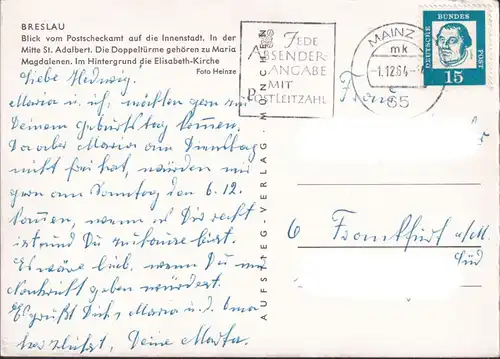 BRESLAU
Blick vom Postscheckamt auf die Innenstadt. In der
Mitte St. Adalbert. Die Doppeltürme gehören zu Maria
Magdalenen. Im Hintergrund die Elisabeth-Kirche
Foto Heinze
Liebe Hedwig.
Maria u. ich, möchten gern zu
Deinem Geburtstag kommen.
Da aber Maria am Dienstag
nicht frei hat, würden wir
gern am Sonntag den 6.12.
kommen, wenn es Dir recht
ist und Du zuhause bist.
Es wäre lieb, wenn Du
Nachricht geben würdest.
Es grüßt Dich Maria u. d. Oma
herzlichst, Deine Marta.
AUFSTIEG-VERLAG · MÜNCHEN
JEDE
ABSENDER-
ANGABE
MIT
POSTLEITZAHL
MAINZ
mk
-1.12.64-
65
DEUTSCHE BUNDESPOST
15
Frau
6 Frankfurt a/M.
Süd